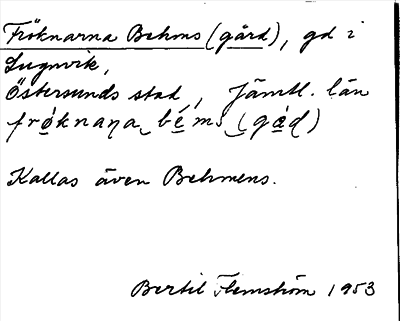 Fröknarna Behms (gård), gd i
Lugnvik,
Östersunds stad, Jämtl. län
frø̀knaṇa bém̀s (gæ̀ḍ)
Kallas även Behmens.
Bertil Flemström 1953